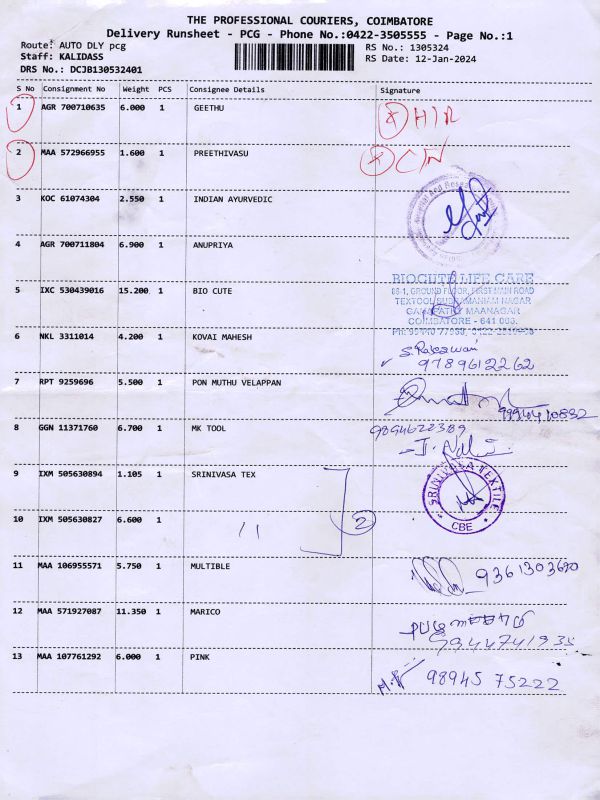 THE PROFESSIONAL COURIERS, COIMBATORE
Delivery Runsheet - PCG - Phone No.:0422-3505555 - Page No.:1
Route: AUTO DLY pcg RS No.: 1305324
Staff: KALIDASS RS Date: 12-Jan-2024
DRS No.: DCJB130532401
S No Consignment No Weight PCS Consignee Details Signature
1 AGR 700710635 6.000 1 GEETHU
2 MAA 572966955 1.600 1 PREETHIVASU
3 KOC 61074304 2.550 1 INDIAN AYURVEDIC
4 AGR 700711804 6.900 1 ANUPRIYA
5 IXC 530439016 15.200 1 BIO CUTE
BIOCUTE LIFE CARE
GROUND FLOOR, FIRST MAIN ROAD
TEXTOOL SUBRAMANIAM NAGAR
GANAPATHY MAANAGAR
COIMBATORE - 641 006.
6 NKL 3311014 4.200 1 KOVAI MAHESH
9789612262
7 RPT 9259696 5.500 1 PON MUTHU VELAPPAN
8 GGN 11371760 6.700 1 MK TOOL 9894622389
9 IXM 505630894 1.105 1 SRINIVASA TEX
SRINIVASA TEXTILE
CBE
10 IXM 505630827 6.600 1 11 2
11 MAA 106955571 5.750 1 MULTIBLE
12 MAA 571927087 11.350 1 MARICO
9944741935
13 MAA 107761292 6.000 1 PINK
98945 75222